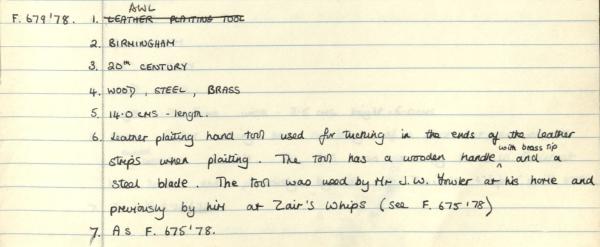 AWL
F.679'78. 1. LEATHER PLAITING TOOL
2. BIRMINGHAM
3. 20th CENTURY
4. WOOD, STEEL, BRASS
5. 14.0 CMS - length.
6. Leather plaiting hand tool used for tucking in the ends of the leather
strips when plaiting. The tool has a wooden handle with brass tip and a
steel blade. The tool was used by Mr J.W. Fowler at his home and
previously by him at Zair's Whips (see F. 675'78)
7. As F. 675'78.